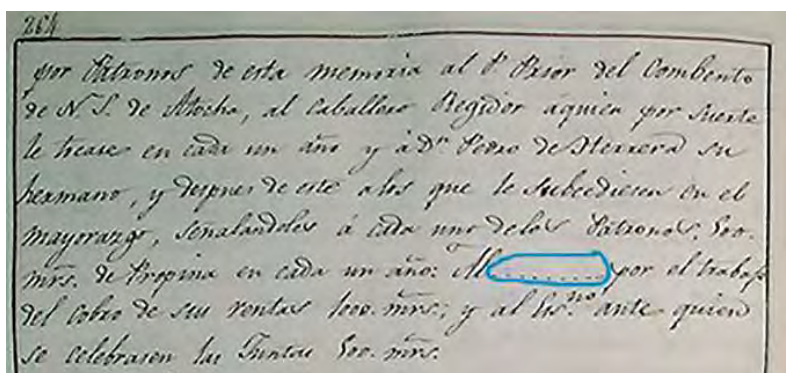 264
por Patronos de esta memoria al P. Prior del Combento
de N. S. de Atocha, al Caballero Regidor aquien por suerte
le tocare en cada un año y à Dn. Pedro de Herrera su
hermano, y despues de este alos que le subcediesen en el
mayorazgo, señalandoles à cada uno delos Patronos, 500.
mrs. de Propina en cada un año: Al .......... por el trabajo
del cobro de sus rentas 1000. mrs; y al Esno. ante quien
se celebrasen las Juntas 500. mrs.